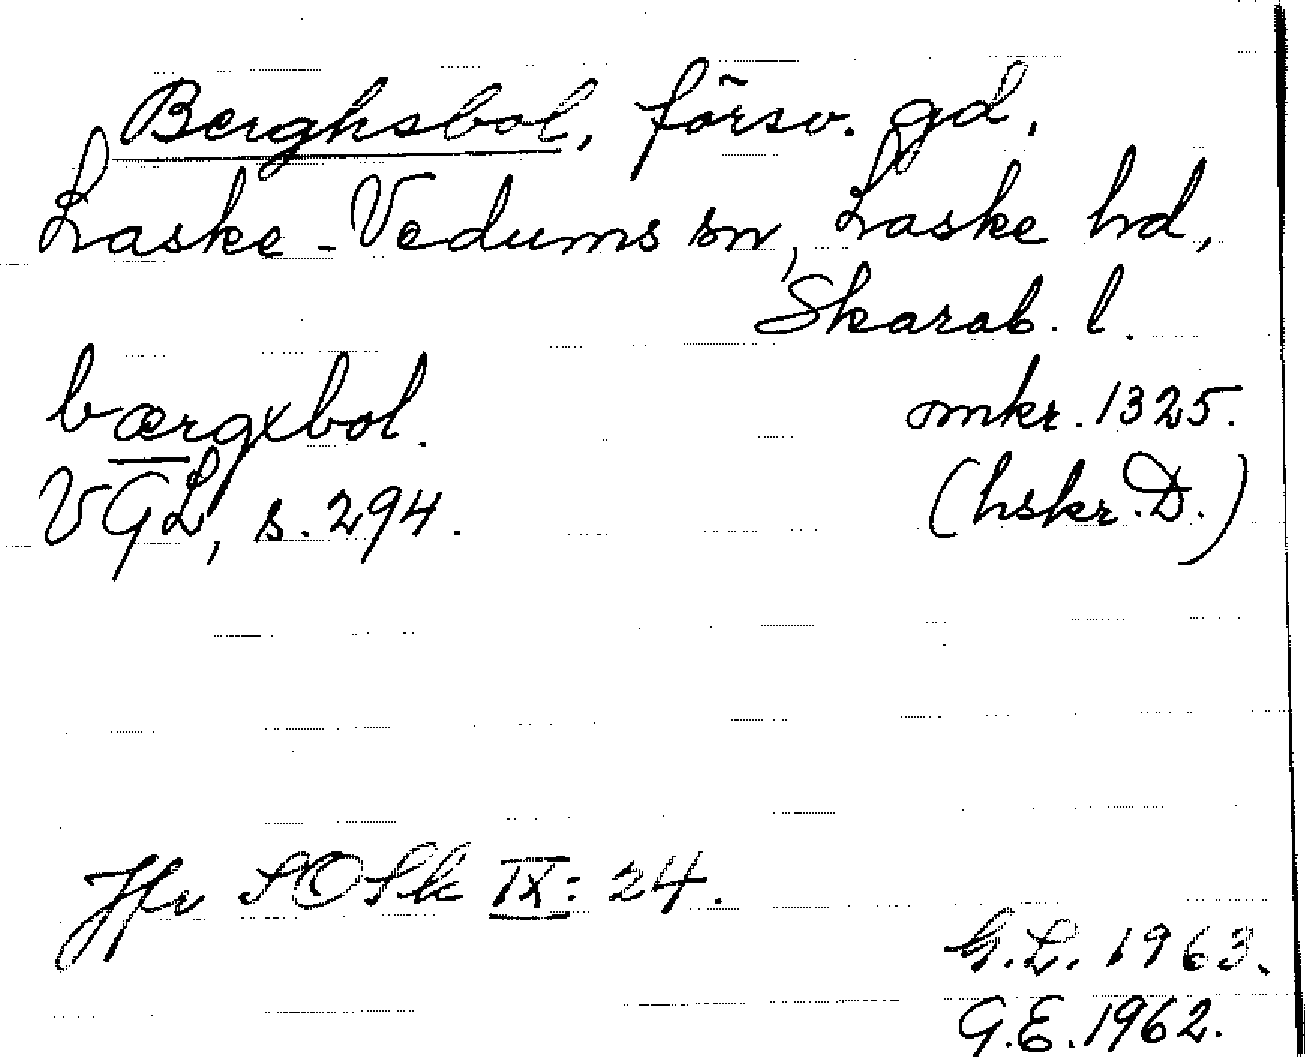 Berghsbol, försv. gd,
Laske-Vedums sn, Laske hd,
Skarab. l.
bærgxbol. mkr. 1325.
VGL, s. 294. (hskr. D.)
Jfr SOSk IX: 24.
G.L. 1963.
G.E. 1962.